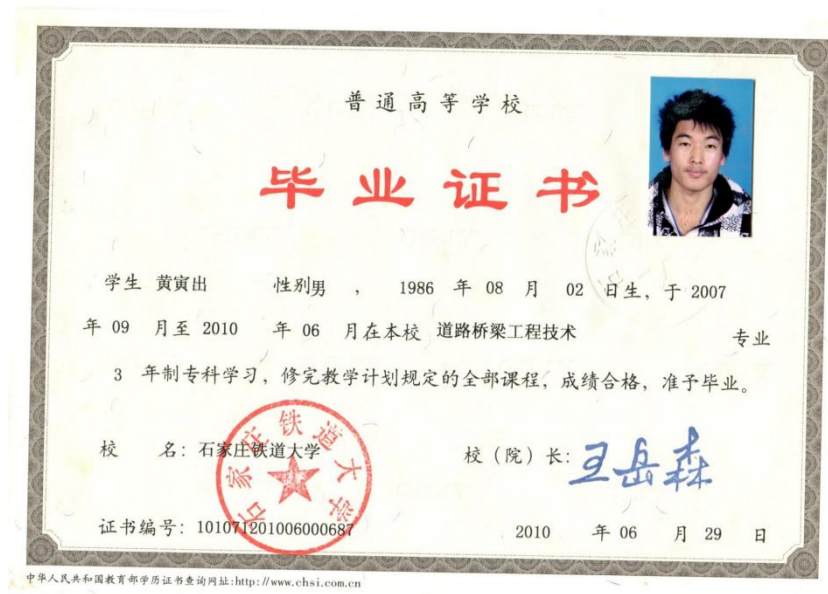 普通高等学校
毕业证书
学生 黄寅出 性别男 ， 1986 年 08 月 02 日生，于 2007
年 09 月至 2010 年 06 月在本校 道路桥梁工程技术 专业
3 年制专科学习，修完教学计划规定的全部课程，成绩合格，准予毕业。
校 名：石家庄铁道大学 校（院）长：王岳森
石家庄铁道大学
证书编号：101071201006000687 2010 年 06 月 29 日
中华人民共和国教育部学历证书查询网址:http://www.chsi.com.cn